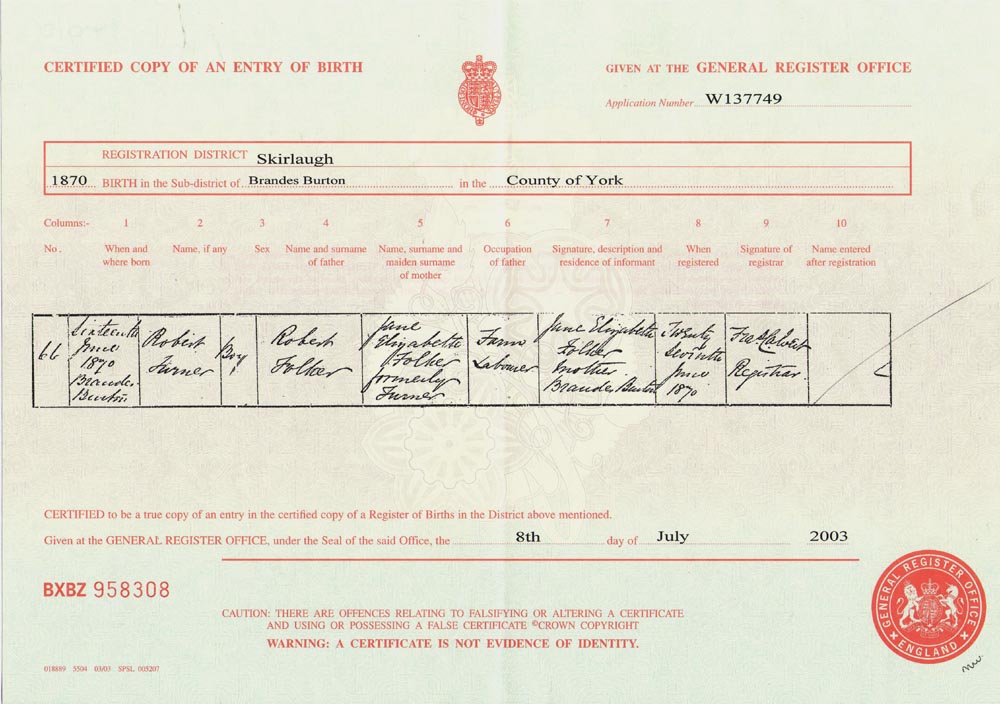 CERTIFIED COPY OF AN ENTRY OF BIRTH
GIVEN AT THE GENERAL REGISTER OFFICE
Application Number W137749
REGISTRATION DISTRICT Skirlaugh
1870 BIRTH in the Sub-district of Brandes Burton in the County of York
Columns:- 1 2 3 4 5 6 7 8 9 10
No. When and where born Name, if any Sex Name and surname of father Name, surname and maiden surname of mother Occupation of father Signature, description and residence of informant When registered Signature of registrar Name entered after registration
66
Sixteenth
June
1870
Brandes
Burton
Robert
Turner
Boy
Robert
Folker
Jane
Elizabeth
Folker
formerly
Turner
Farm
Labourer
Jane Elizabeth
Folker
mother
Brandes Burton
Twenty
Seventh
June
1870
Registrar
CERTIFIED to be a true copy of an entry in the certified copy of a Register of Births in the District above mentioned.
Given at the GENERAL REGISTER OFFICE, under the Seal of the said Office, the 8th day of July 2003
BXBZ 958308
CAUTION: THERE ARE OFFENCES RELATING TO FALSIFYING OR ALTERING A CERTIFICATE
AND USING OR POSSESSING A FALSE CERTIFICATE ©CROWN COPYRIGHT
WARNING: A CERTIFICATE IS NOT EVIDENCE OF IDENTITY.
018889 5504 03/03 SPSL 005207
GENERAL REGISTER OFFICE
ENGLAND